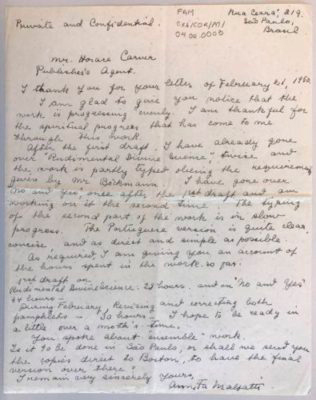 Private and Confidential.
FAM
04.00.0003
Rua Ceará, 219.
São Paulo,
Brasil
Mr. Horace Carver
Publisher's Agent.
I thank you for your letter of February 21, 1952
I am glad to give you notice that the
work is progressing evenly. I am thankful for
the spiritual progress that has come to me
through this work.
After the first draft, I have already gone
over "Rudimental Divine Science" twice and
the work is partly typed obeying the requirements
given by Mr. I have gone over
"No and Yes" once after the first draft and am
working on it the second time. The typing
of the second part of the work is in slow
progress. The Portuguese version is quite clear,
concise, and as direct and simple as possible.
As required, I am giving you an account of
the hours spent in the work so far.
first draft on
Rudimental Divine Science: 23 hours. and on "No and Yes"
54 hours -
During February, Revising and correcting both
pamphlets - 30 hours - I hope to be ready in
a little over a month's time.
You spoke about "ensemble" work.
Is it to be done in São Paulo, or shall we send you
the copies direct to Boston, to have the final
version over there?
I remain very sincerely yours,
Annita Malfatti